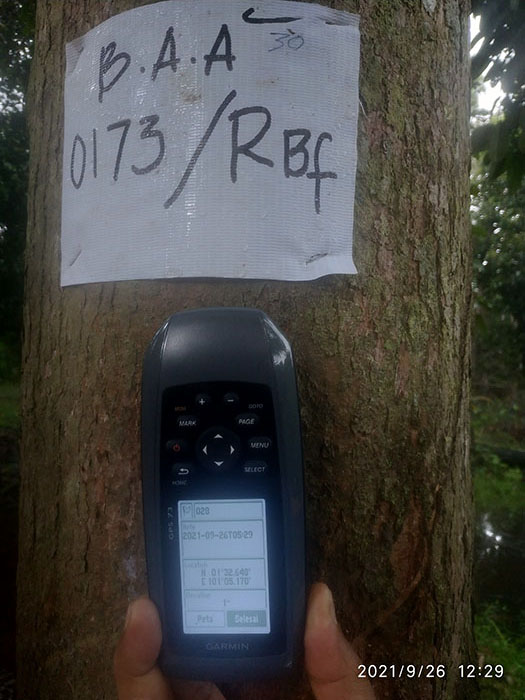 B.A.A
30
0173/RBf
MARK
PAGE
MENU
SELECT
GPS 73
029
Note
2021-09-26T08:29
Location
N 01°32.648'
E 101°05.170'
Elevation
Peta
Selesai
GARMIN
2021/9/26 12:29